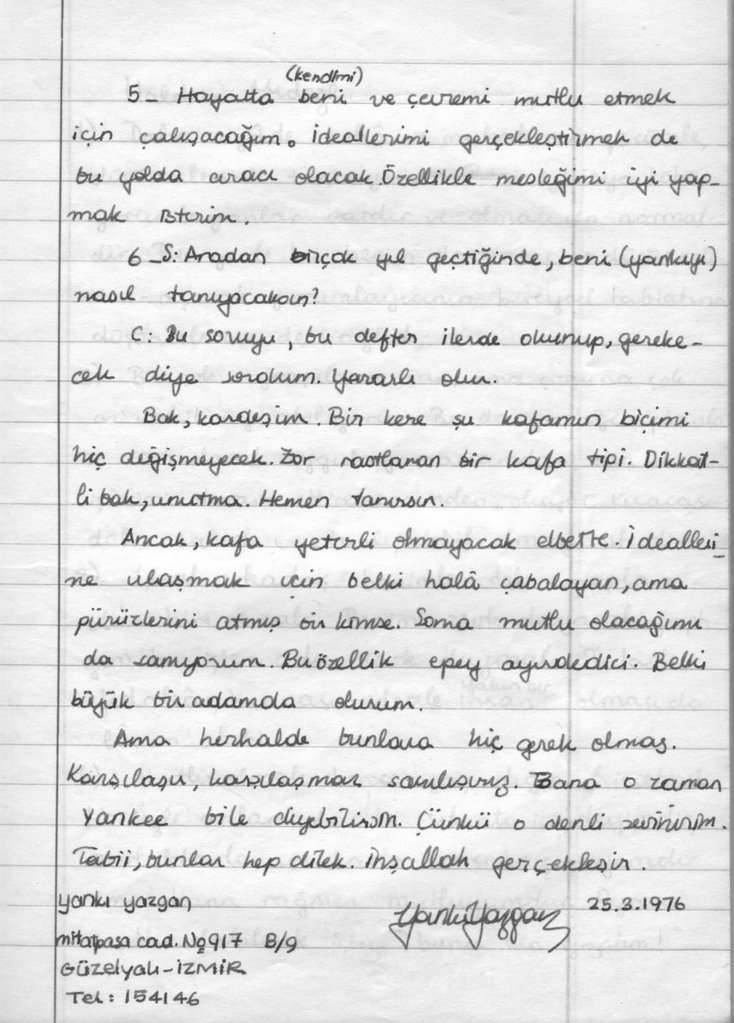 (kendimi)
5- Hayatta beni ve çevremi mutlu etmek
için çalışacağım. İdeallerimi gerçekleştirmek de
bu yolda aracı olacak. Özellikle mesleğimi iyi yap-
mak isterim.
6-S: Aradan birçok yıl geçtiğinde, beni (yankıyı)
nasıl tanıyacaksın?
C: Bu soruyu, bu defter ilerde okunup, gereke-
cek diye sordum. Yararlı olur.
Bak, kardeşim. Bir kere şu kafamın biçimi
hiç değişmeyecek. Zor rastlanan bir kafa tipi. Dikkat-
li bak, unutma. Hemen tanırsın.
Ancak, kafa yeterli olmayacak elbette. İdealleri-
ne ulaşmak için belki halâ çabalayan, ama
pürüzlerini atmış bir kimse. Sonra mutlu olacağımı
da sanıyorum. Bu özellik epey ayırdedici. Belki
büyük bir adamda olurum.
Ama herhalde bunlara hiç gerek olmaz.
Karşılaşır, karşılaşmaz sarılışırız. Bana o zaman
Yankee bile diyebilirsin. Çünkü o denli sevinirim.
Tabii, bunlar hep dilek. İnşallah gerçekleşir.
yankı yazgan YankıYazgan 25.3.1976
mitatpaşa cad. No 917 B/9
Güzelyalı-İZMİR
Tel: 154146